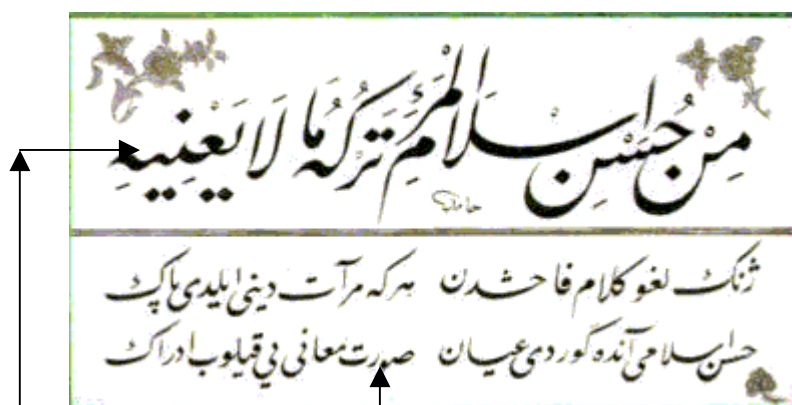 مِنْ حُسْنِ اِسْلَامِ الْمَرْءِ تَرْكُهُ مَا لَا يَعْنِيهِ
ژنك لغو كلام فاحشدن هركه مرآت دينى ايلدى پاك
حسن اسلامى آنده كوردى عيان صورت معانى يى قيلوب ادراك